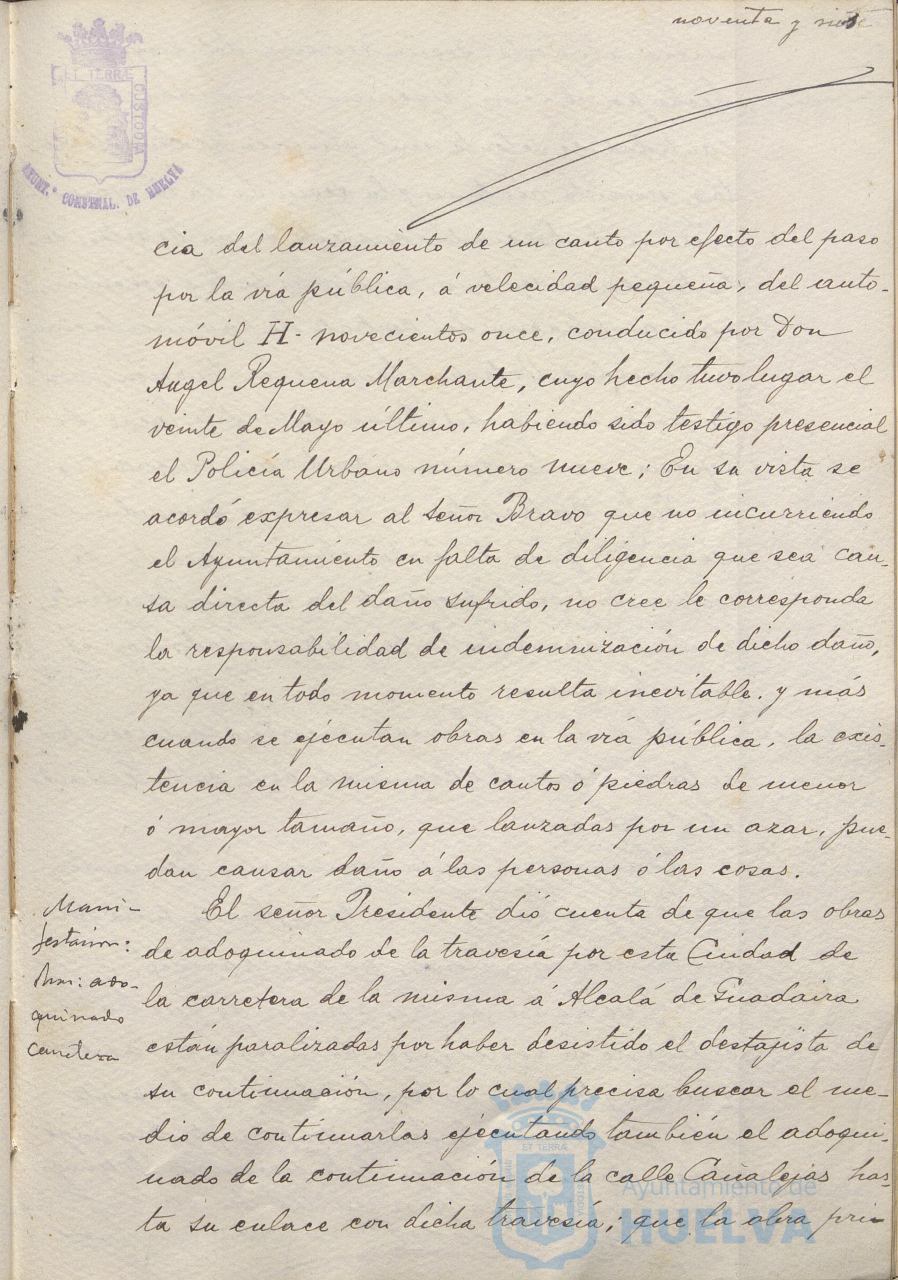 noventa y siete
ET TERRÆ
CUSTODIA
AYUNT.º CONSTNAL. DE HUELVA
cia del lanzamiento de un canto por efecto del paso
por la vía pública, á velocidad pequeña, del auto-
móvil H- novecientos once, conducido por Don
Angel Requena Marchante, cuyo hecho tuvo lugar el
veinte de Mayo último, habiendo sido testigo presencial
el Policía Urbano número nueve; En su vista se
acordó expresar al señor Bravo que no incurriendo
el Ayuntamiento en falta de diligencia que sea cau-
sa directa del daño sufrido, no cree le corresponda
la responsabilidad de indemnización de dicho daño,
ya que en todo momento resulta inevitable, y más
cuando se ejecutan obras en la vía pública, la exis-
tencia en la misma de cantos ó piedras de menor
ó mayor tamaño, que lanzadas por un azar, pue-
dan causar daño á las personas ó las cosas.
Mani-
festación:
adoquinado
carretera
El señor Presidente dió cuenta de que las obras
de adoquinado de la travesía por esta Ciudad de
la carretera de la misma á Alcalá de Guadaira
están paralizadas por haber desistido el destajista de
su continuación, por lo cual precisa buscar el me-
dio de continuarlas ejecutando también el adoqui-
nado de la continuación de la calle Canalejas has-
ta su enlace con dicha travesía, que la obra prin-
ET TERRÆ
Ayuntamiento de
HUELVA